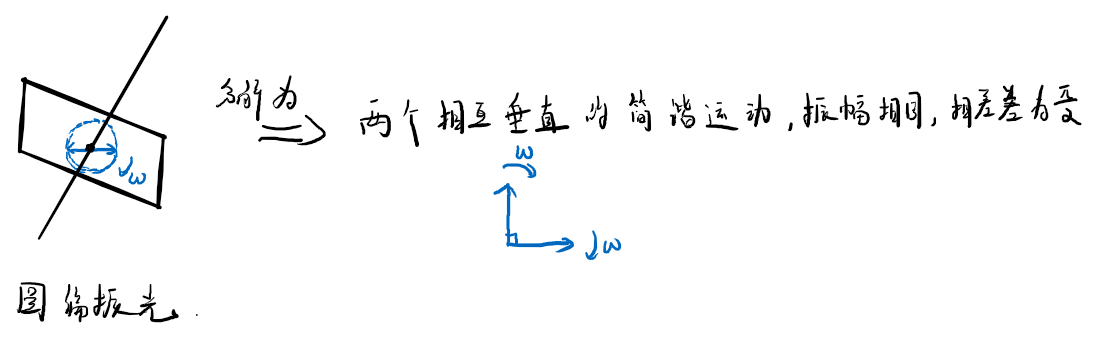 分解为
两个相互垂直的简谐运动,振幅相同,相差差为变
ω
ω
ω
圆偏振光.